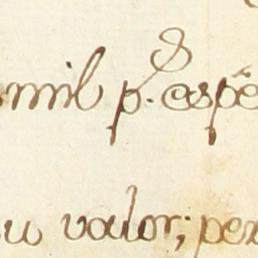 mil p.s espe
su valor; per